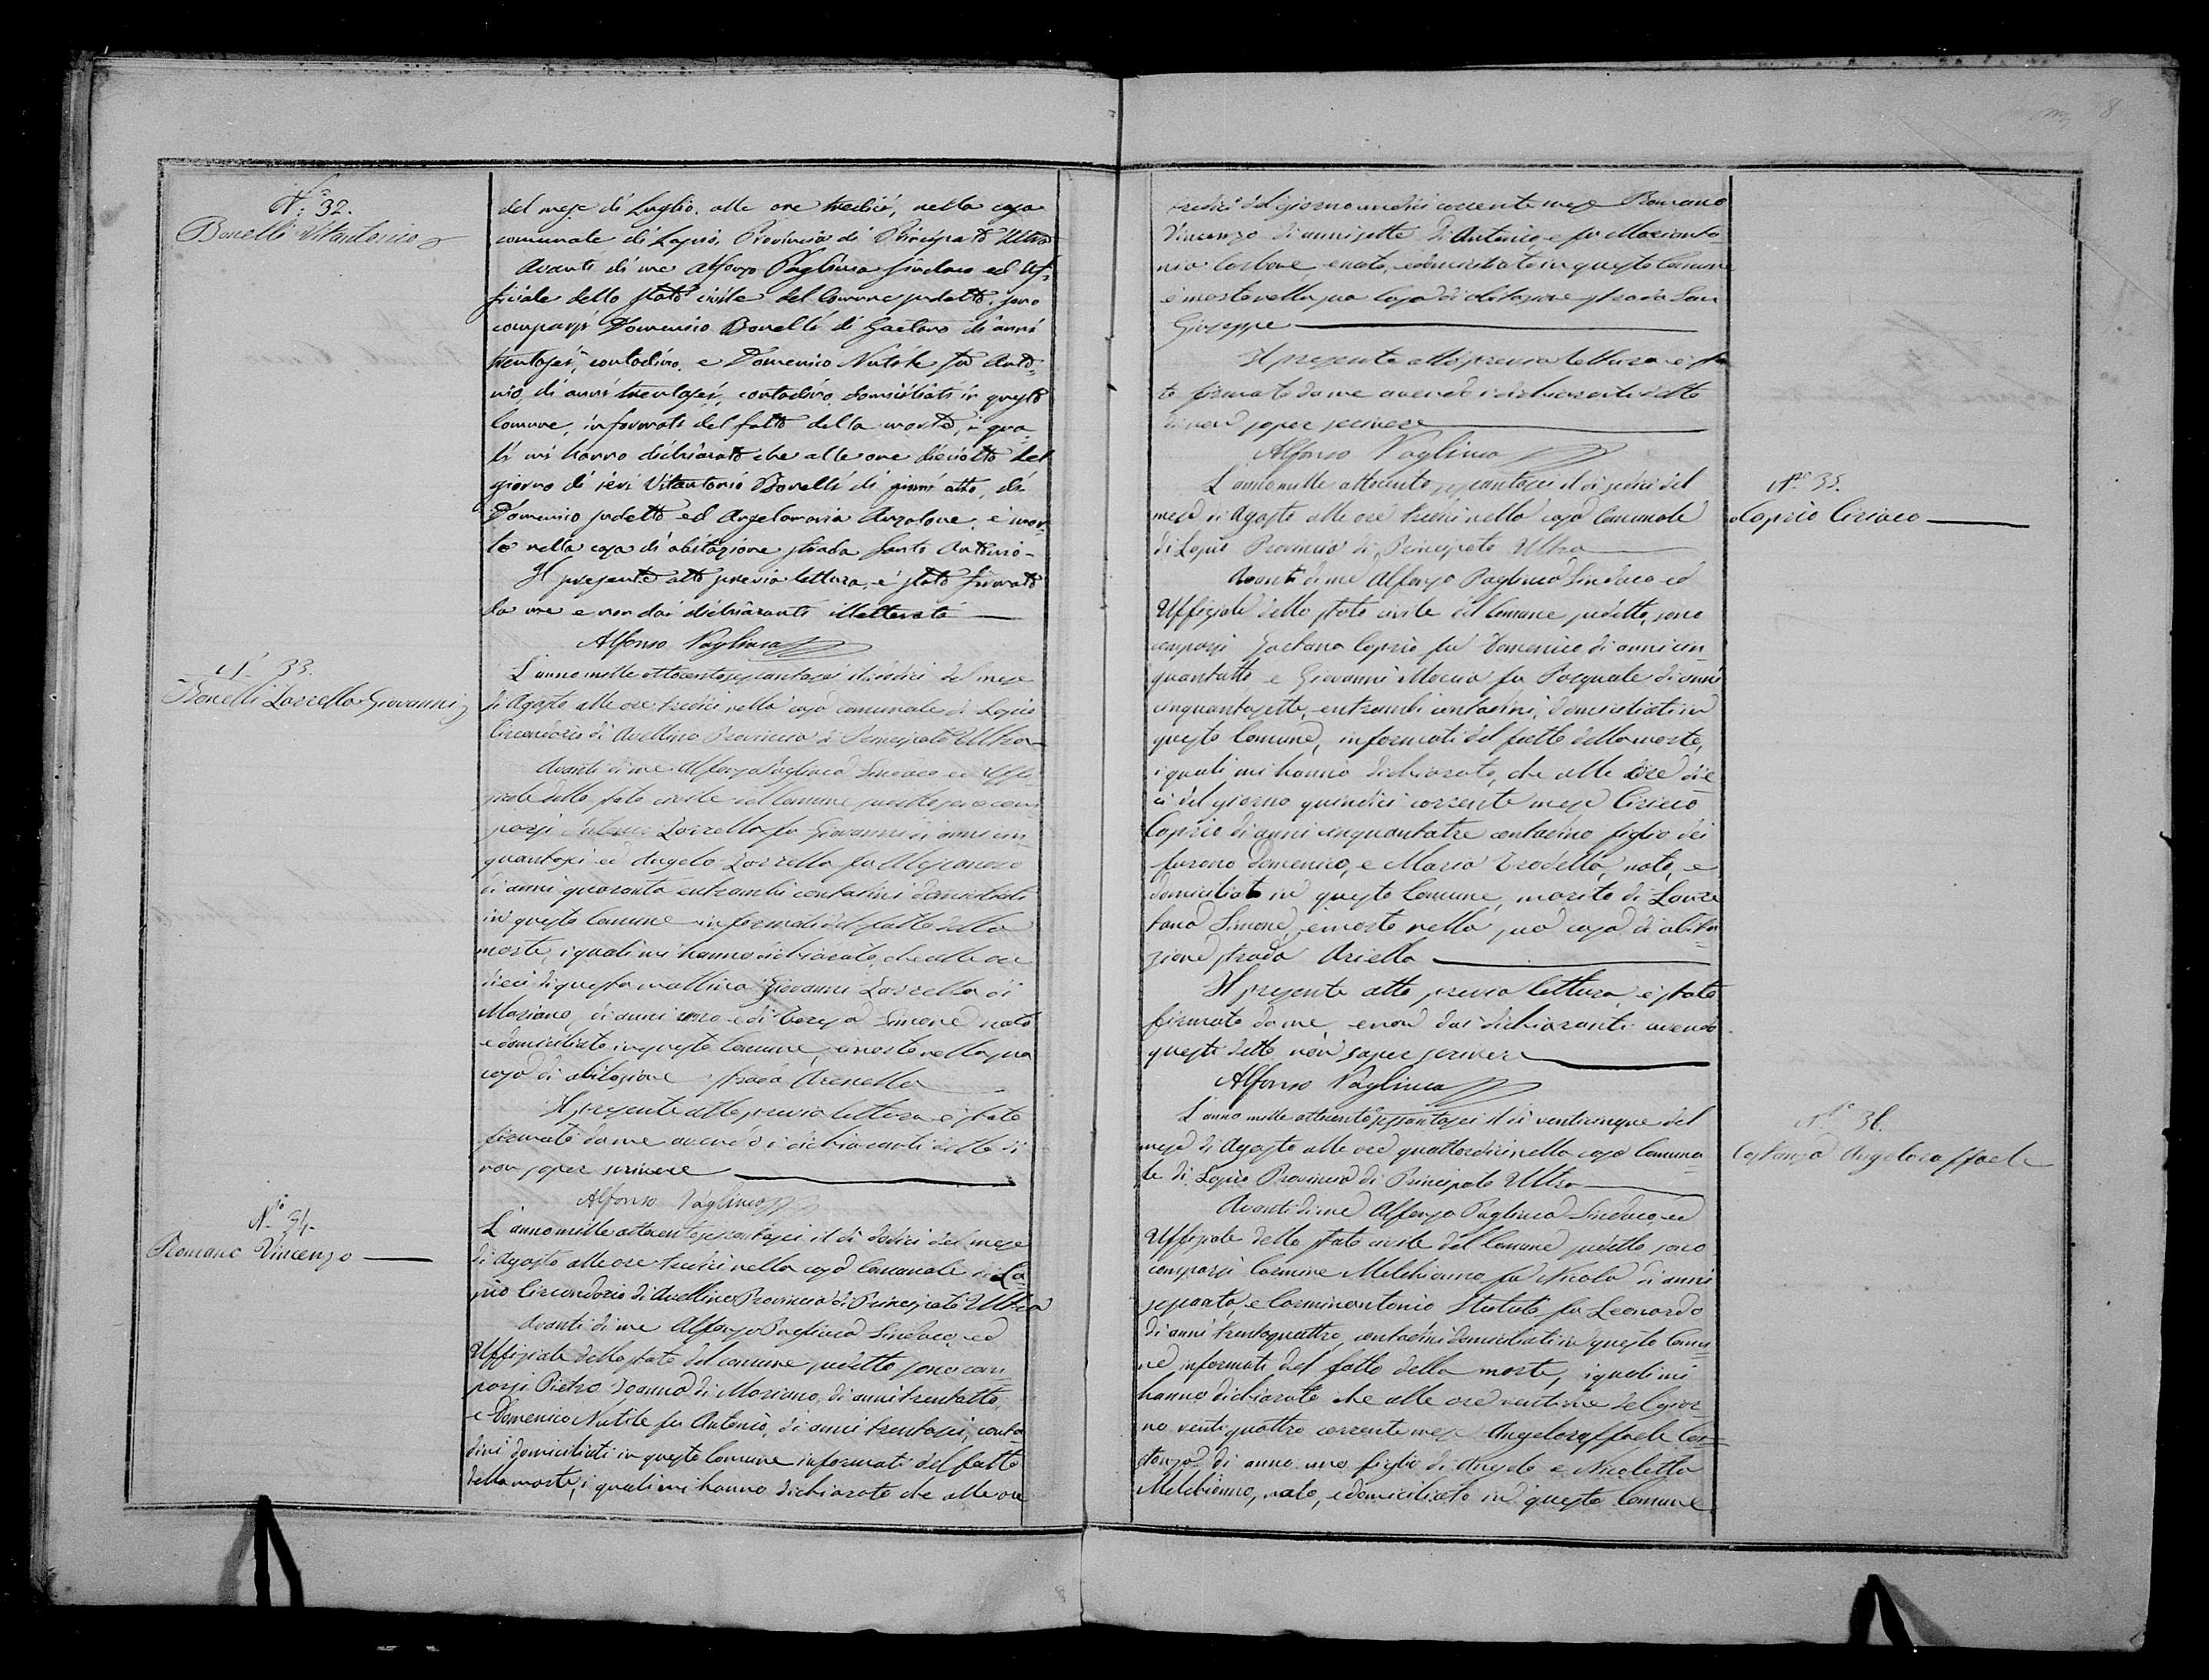 N.° 32.
Bonelli Vitantonio
del mese di Luglio, alle ore tredici, nella casa
comunale di Lapio, Provincia di Principato Ultra
Avanti di me Alfonso Pagliuca Sindaco ed Uf-
fiziale dello Stato civile del Comune sudetto, sono
comparsi Domenico Bonelli di Gaetano di anni
trentasei, contadino, e Domenico Nutile fu Anto-
nio, di anni trentasei, contadino, domiciliati in questo
Comune, informati del fatto della morte, i qua-
li mi hanno dichiarato che alle ore dieciotto del
giorno di ieri Vitantonio Bonelli di giorni otto, di
Domenico sudetto ed Angelamaria Anzalone, è mor-
to nella casa di abitazione strada Santo Antonio-
Il presente atto previa lettura, è stato firmato
da me e non dai dichiaranti illetterati
Alfonso Pagliuca
N. 33.
Bonelli Zarrella Giovanni
L'anno mille ottocentosessantasei il dodici del mese
di Agosto alle ore tredici nella casa comunale di Lapio
Circondario di Avellino Provincia di Principato Ultra
Avanti di me Alfonso Pagliuca Sindaco ed Uffi-
ziale dello stato civile del Comune sudetto sono com-
parsi Zarrella fu Giovanni di anni cin-
quantasei ed Angelo Zarrella fu
di anni quaranta entrambi contadini domiciliati
in questo Comune informati del fatto della
morte, i quali mi hanno dichiarato, che alle ore
dieci di questa mattina Giovanni Zarrella di
Mariano, di anni uno e di Teresa Simone nato
e domiciliato in questo Comune, è morto nella sua
casa di abitazione strada Arenella
Il presente atto previa lettura è stato
firmato da me avendo i dichiaranti detto di
non saper scrivere
Alfonso Pagliuca
N.° 34.
Romano Vincenzo
L'anno mille ottocentosessantasei il dì dodici del mese
di Agosto alle ore tredici nella casa Comunale di La-
pio Circondario di Avellino Provincia di Principato Ultra
Avanti di me Alfonso Pagliuca Sindaco, ed
Uffiziale dello stato del comune sudetto sono com-
parsi Pietro Joanna di Mariano, di anni trentotto,
e Domenico Nutile fu Antonio, di anni trentasei, conta-
dini domiciliati in questo Comune informati del fatto
della morte, i quali mi hanno dichiarato che alle ore
tredici del giorno undici corrente mese Romano
Vincenzo di anni sette di Antonio, e fu Marianto-
nia Carbone, e nato, e domiciliato in questo Comune
è morto nella sua Casa di abitazione strada San
Giuseppe
Il presente atto previa lettura è sta
to firmato da me avendo i dichiaranti detto
di non saper scrivere
Alfonso Pagliuca
N.° 35.
Caprio Ciriaco
L'anno mille ottocento sessantasei il dì sedici del
mese di Agosto alle ore tredici nella casa Comunale
di Lapio Provincia di Principato Ultra
Avanti di me Alfonso Pagliuca Sindaco ed
Uffiziale dello stato civile del Comune sudetto, sono
comparsi Gaetano Caprio fu Domenico di anni cin-
quantotto e Giovanni Moccia fu Pasquale di anni
cinquantasette, entrambi contadini, domiciliati in
questo Comune, informati del fatto della morte,
i quali mi hanno dichiarato, che alle ore die-
ci del giorno quindici corrente mese Ciriaco
Caprio di anni cinquantatre contadino figlio dei
furono Domenico, e Maria Trodella, nato, e
domiciliato in questo Comune, marito di
Simone, è morto nella sua casa di abita-
zione strada Ariella
Il presente atto previa lettura, è stato
firmato da me, e non dai dichiaranti avendo
questi detto non saper scrivere
Alfonso Pagliuca
N.° 36.
Costanza Angeloraffaele
L'anno mille ottocentosessantasei il dì venticinque del
mese di Agosto alle ore quattordici, nella casa Comuna-
le di Lapio Provincia di Principato Ultra
Avanti di me Alfonso Pagliuca Sindaco ed
Uffiziale dello stato civile del Comune sudetto sono
comparsi Carmine Melchionno fu Nicola di anni
sessanta, e Carminantonio Statuto fu Leonardo
di anni trentaquattro, contadini domiciliati in questo Comu-
ne informati del fatto della morte, i quali mi
hanno dichiarato che alle ore ventidue del gior-
no venti quattro corrente mese Angeloraffaele Cos-
tanza di anno uno figlio di Angelo e Nicoletta
Melchionno, nato, e domiciliato in questo Comune